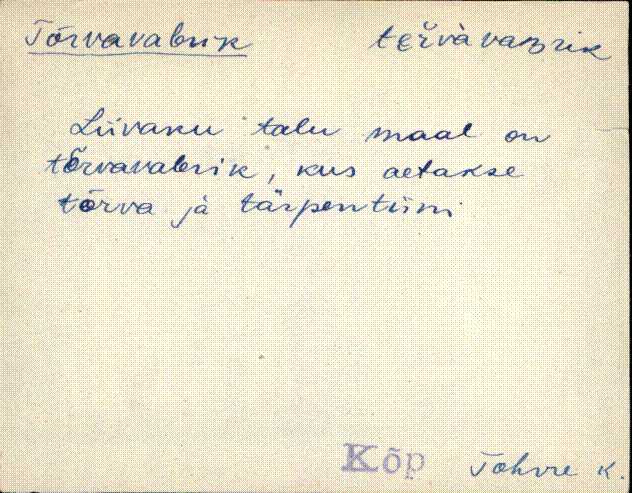 Tõrvavabrik tɛ̆rvàvaʙrik
Liivaku talu maal on
tõrvavabrik, kus aetakse
tõrva ja tärpentiini
Kõp Tohvre k.